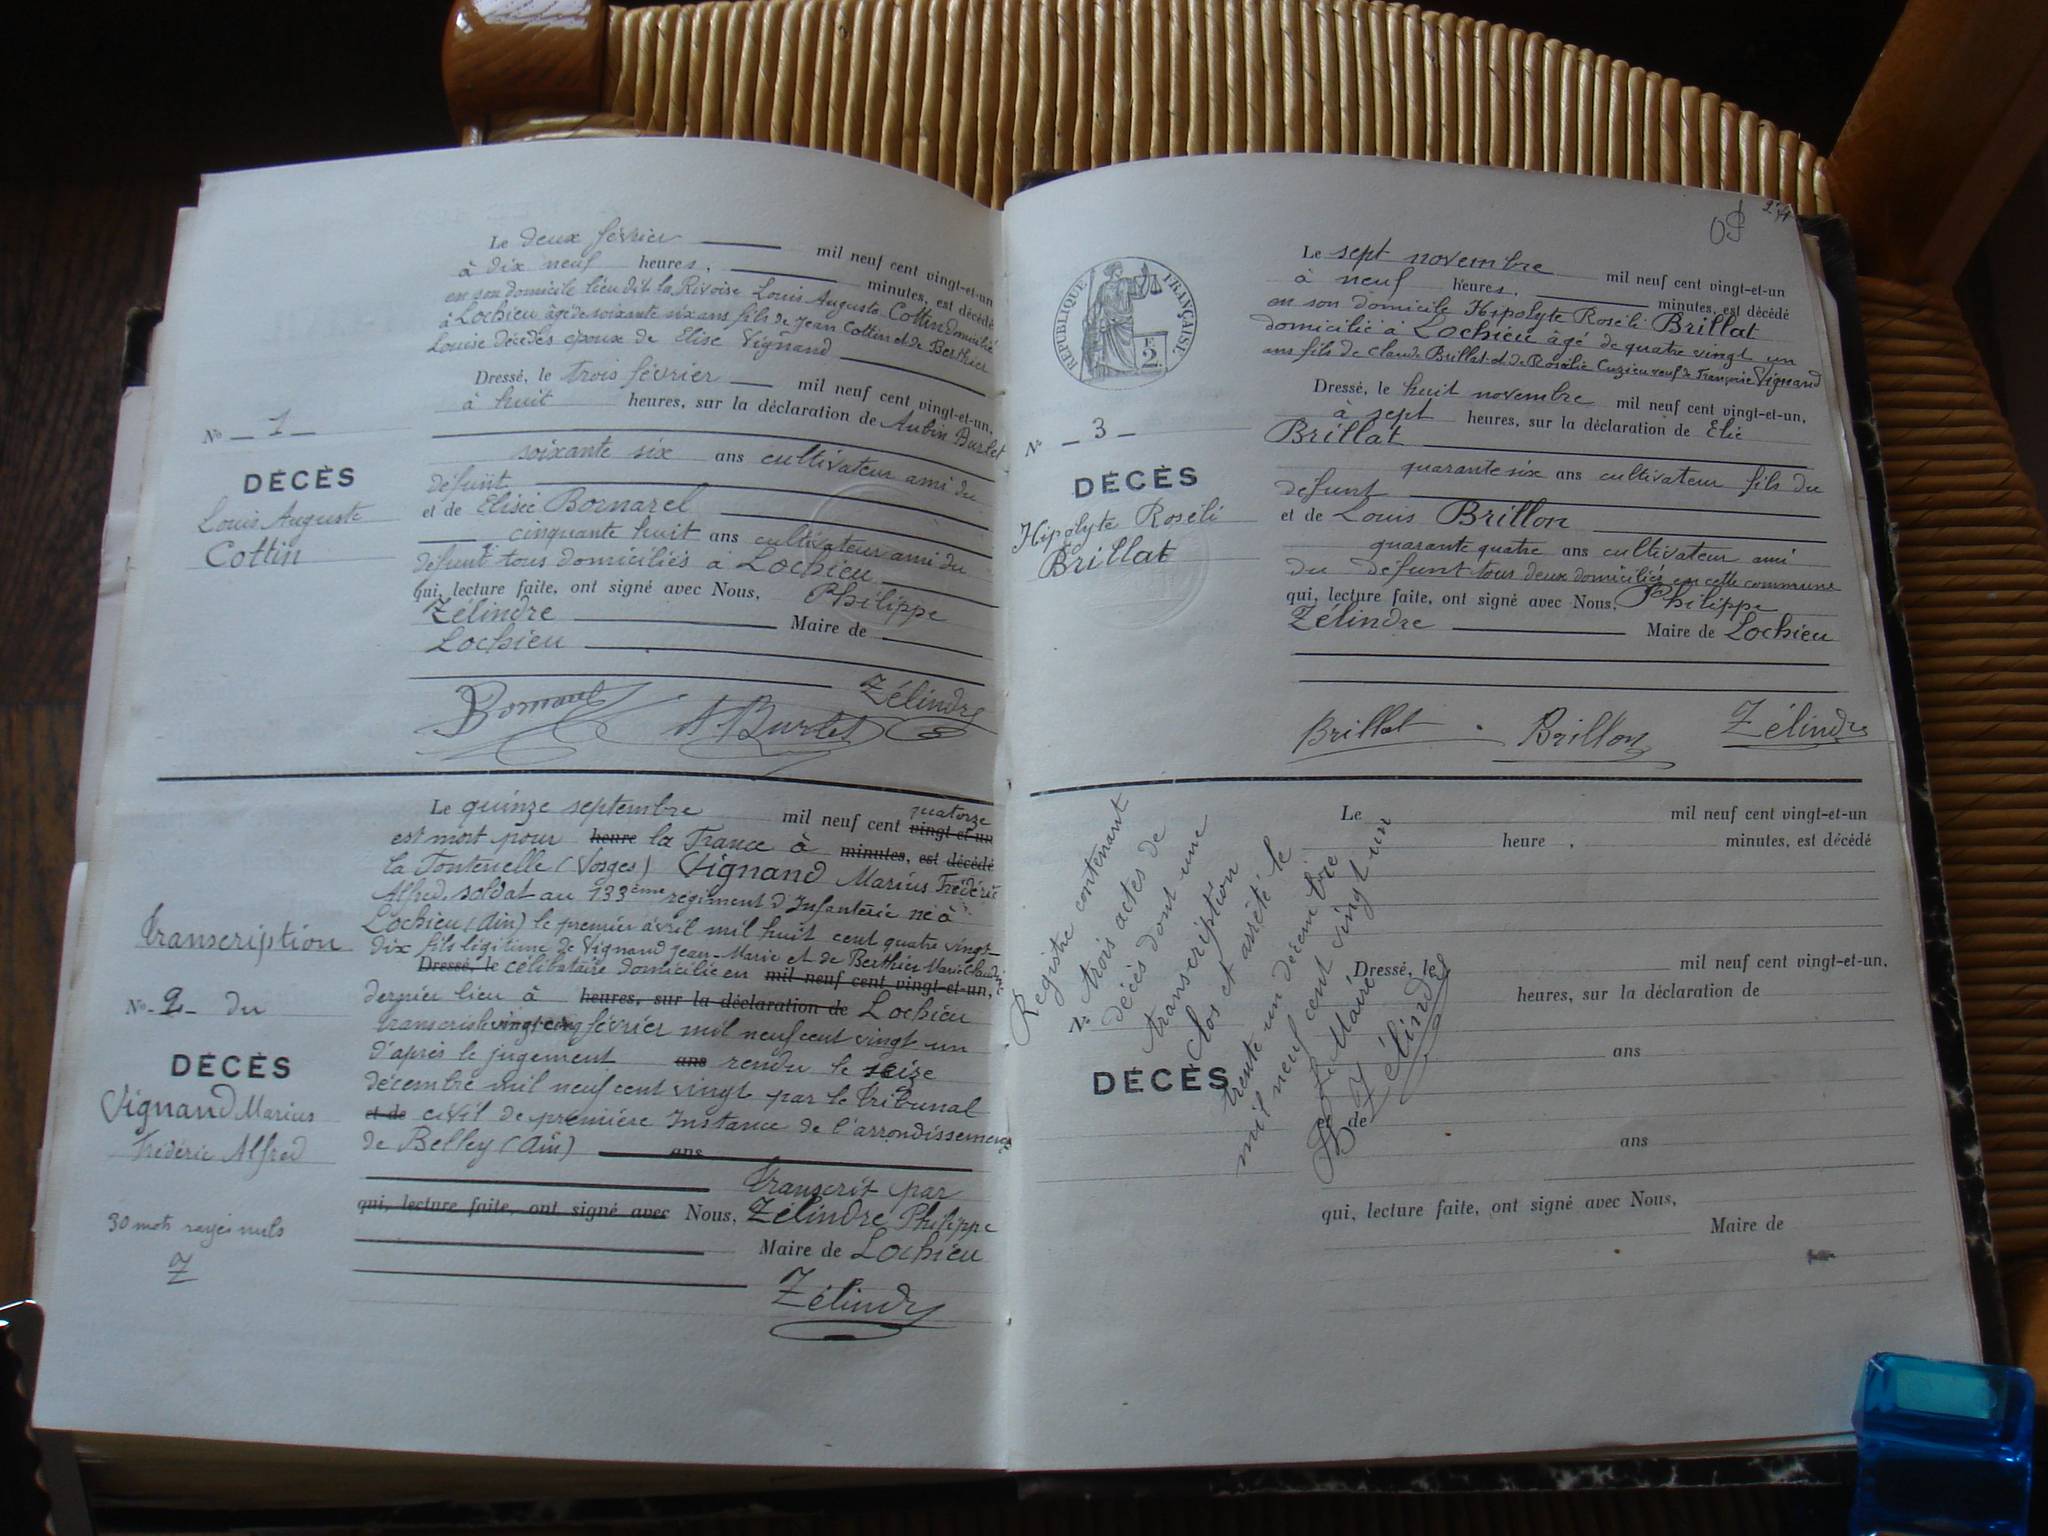 Le deux février mil neuf cent vingt-et-un
à dix neuf heures, minutes, est décédé
en son domicile lieu dit la Rivoire Louis Auguste Cottin domicilié
à Lochieu âgé de soixante six ans fils de Jean Cottin et de Berthier
Louise décédés époux de Elise Vignand
Dressé, le trois février mil neuf cent vingt-et-un,
à huit heures, sur la déclaration de Aubin Burlet
No 1
soixante six ans cultivateur ami du
DÉCÈS
défunt
Louis Auguste
et de Elisée Bornarel
Cottin
cinquante huit ans cultivateur ami du
défunt tous domiciliés à Lochieu
qui, lecture faite, ont signé avec Nous, Philippe
Zélindre Maire de
Lochieu
Bornarel A. Burlet Zélindre
Le quinze septembre mil neuf cent quatorze
vingt-et-un
est mort pour heure la France à minutes, est décédé
la Fontenelle (Vosges) Vignand Marius Frédéric
Alfred, soldat au 133ème régiment d'Infanterie né à
Lochieu (Ain) le premier avril mil huit cent quatre vingt-
Transcription
dix fils légitime de Vignand Jean-Marie et de Berthier Marie Claudine
Dressé, le célibataire domicilié en mil neuf cent vingt-et-un,
No 2 du
dernier lieu à heures, sur la déclaration de Lochieu
transcrit le vingt cinq février mil neuf cent vingt un
DÉCÈS
d'après le jugement ans rendu le seize
Vignand Marius
décembre mil neuf cent vingt par le Tribunal
Frédéric Alfred
et de civil de première Instance de l'arrondissement
de Belley (Ain) ans
Transcrit par
30 mots rayés nuls
qui, lecture faite, ont signé avec Nous, Zélindre Philippe
Z
Maire de Lochieu
Zélindre
RÉPUBLIQUE FRANÇAISE
E
2
Le sept novembre mil neuf cent vingt-et-un
à neuf heures, minutes, est décédé
en son domicile Hipolyte Roséli Brillat
domicilié à Lochieu âgé de quatre vingt un
ans fils de Claude Brillat et de Rosalie Cuzieu veuf de Françoise Vignand
Dressé, le huit novembre mil neuf cent vingt-et-un,
à sept heures, sur la déclaration de Elie
No 3
Brillat
DÉCÈS
quarante six ans cultivateur fils du
défunt
Hipolyte Roséli
et de Louis Brillon
Brillat
quarante quatre ans cultivateur ami
du défunt tous deux domiciliés en cette commune
qui, lecture faite, ont signé avec Nous, Philippe
Zélindre Maire de Lochieu
Brillat Brillon Zélindre
Registre contenant
trois actes de
décès dont une
transcription
Clos et arrêté le
trente un décembre
mil neuf cent vingt un
Le Maire
Zélindre
Le mil neuf cent vingt-et-un
heure , minutes, est décédé
Dressé, le mil neuf cent vingt-et-un,
heures, sur la déclaration de
No
ans
DÉCÈS
et de
ans
qui, lecture faite, ont signé avec Nous,
Maire de